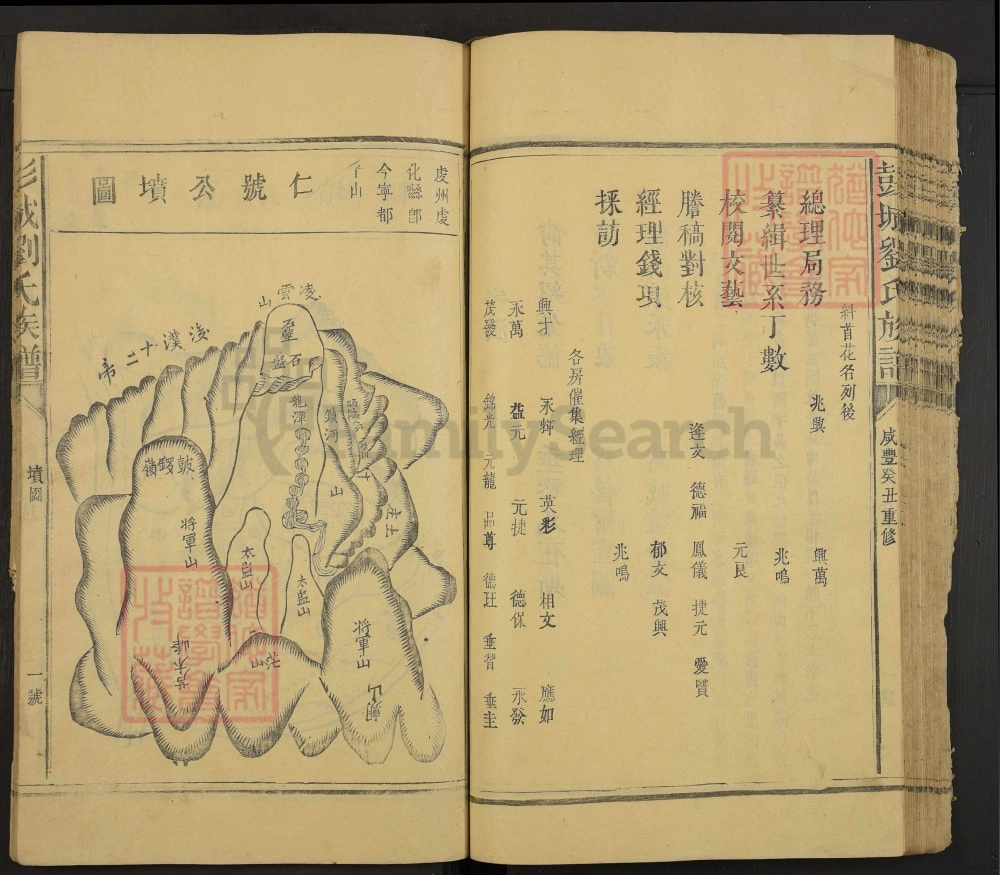 彭城劉氏族譜
咸豐癸丑重修
糾首花名列後
總理局務 兆興 興萬
纂緝世系丁數 兆鳴
校閱文藝 元良
謄稿對核 逢文 德福 鳳儀 捷元 愛質
經理錢項 郁文 茂興
採訪 兆鳴
各房催集經理
興才 永輝 英彩 相文 應如
永萬 益元 元捷 德保 永發
茂發 錦光 元龍 品尊 德玨 垂智 垂圭
虔州虔
化縣卽
今寧都
仁號公墳圖
凌雲山
石盤
後漢十二帝
龍潭
鎖河
山
皷鑼嶺
將軍山
太盤山
太盤山
將軍山
土走
彭城劉氏族譜
墳圖
一號
FamilySearch